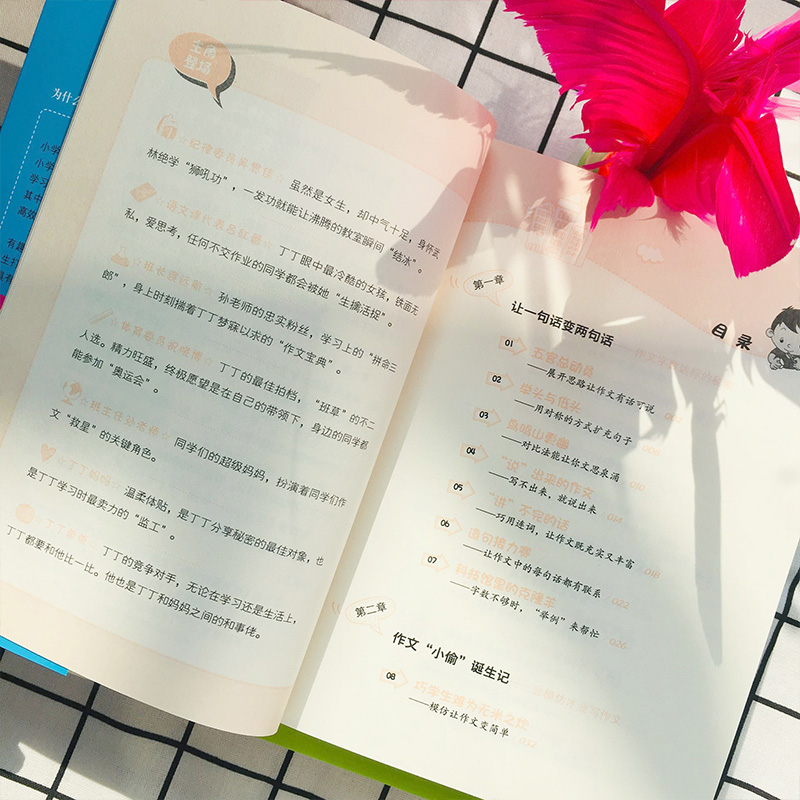 为什么
小学
小学
学习
其中
高效
主角
登场
纪律委员关雪佳： 虽然是女生，却中气十足，身怀武
林绝学“狮吼功”，一发功就能让沸腾的教室瞬间“结冰”。
语文课代表吕 ： 丁丁眼中最冷酷的女孩，铁面无
私，爱思考，任何不交作业的同学都会被她“生擒活捉”。
组长 ： 孙老师的忠实粉丝，学习上的“拼命三
郎”，身上时刻揣着丁丁梦寐以求的“作文宝典”。
体育委员 博： 丁丁的最佳拍档，“班草”的不二
人选。精力旺盛，终极愿望是在自己的带领下，身边的同学都
能参加“奥运会”。
班主任孙老师： 同学们的超级妈妈，扮演着同学们作
文“救星”的关键角色。
丁丁妈妈： 温柔体贴，是丁丁分享秘密的最佳对象，也
是丁丁学习时最卖力的“监工”。
丁丁爸爸： 丁丁的竞争对手，无论在学习还是生活上，
丁丁都要和他比一比。他也是丁丁和妈妈之间的和事佬。
目 录
第一章
让一句话变两句话
01 五官总动员
——展开思路让作文有话可说
02 举头与低头
——用对称的方式扩充句子 008
03
——对比法能让你文思泉涌
04 “说”出来的作文
——写不出来，就说出来 014
05 “讲”不完的话
——巧用连词，让作文既充实又丰富 018
06 造句接力赛
——让作文中的每句话都有联系 022
07 科技馆里的
——字数不够时，“举例”来帮忙 026
第二章
作文“小偷”诞生记
08 巧学生难为无米之炊
——模仿让作文变简单 032